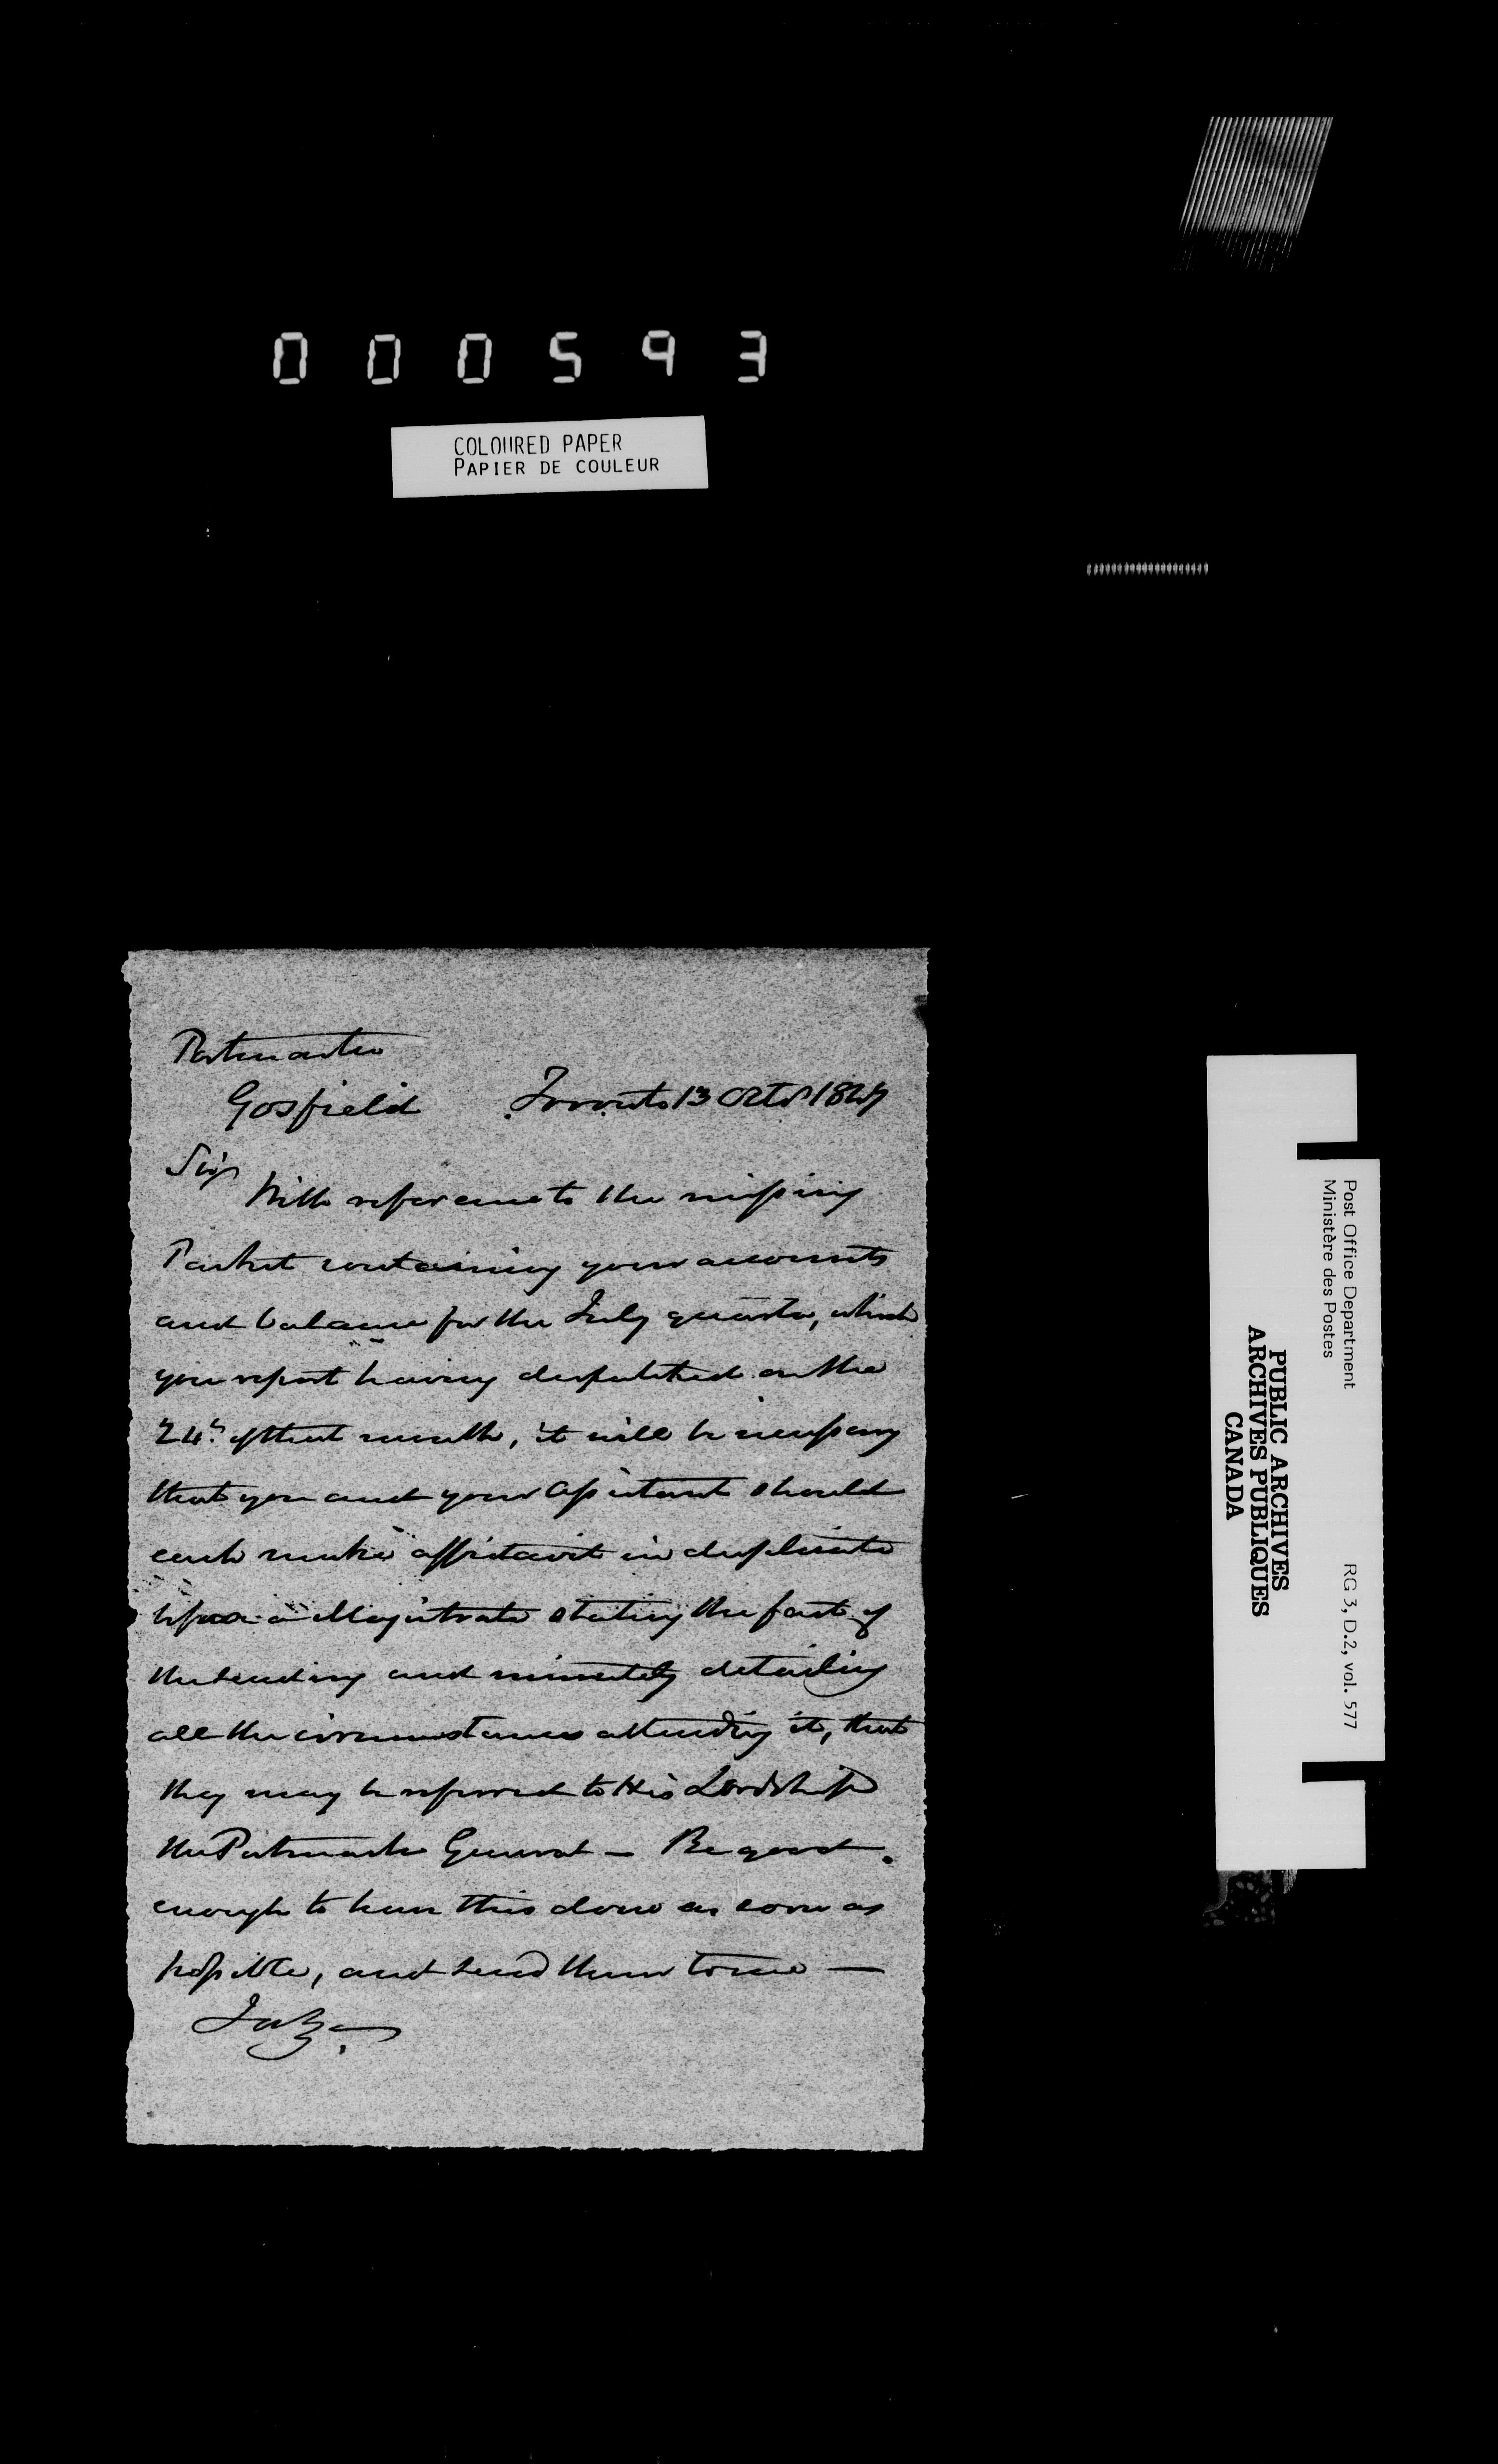 000593
COLOURED PAPER
PAPIER DE COULEUR
Postmaster
Gosfield Toronto 13 Octr 1847
Sir
With reference to the missing
Packet containing your accounts
and balance for the July quarter, which
you report having despatched on the
24th of that month, it will be necessary
that you and your assistant should
each make affidavit in duplicate
before a Magistrate stating the fact of
the sending and minutely detailing
all the circumstances attending it, that
they may be referred to His Lordship
the Postmaster General – Be good
enough to have this done as soon as
possible, and send them to me —
Post Office Department
Ministère des Postes
RG 3, D.2, vol. 577
PUBLIC ARCHIVES
ARCHIVES PUBLIQUES
CANADA